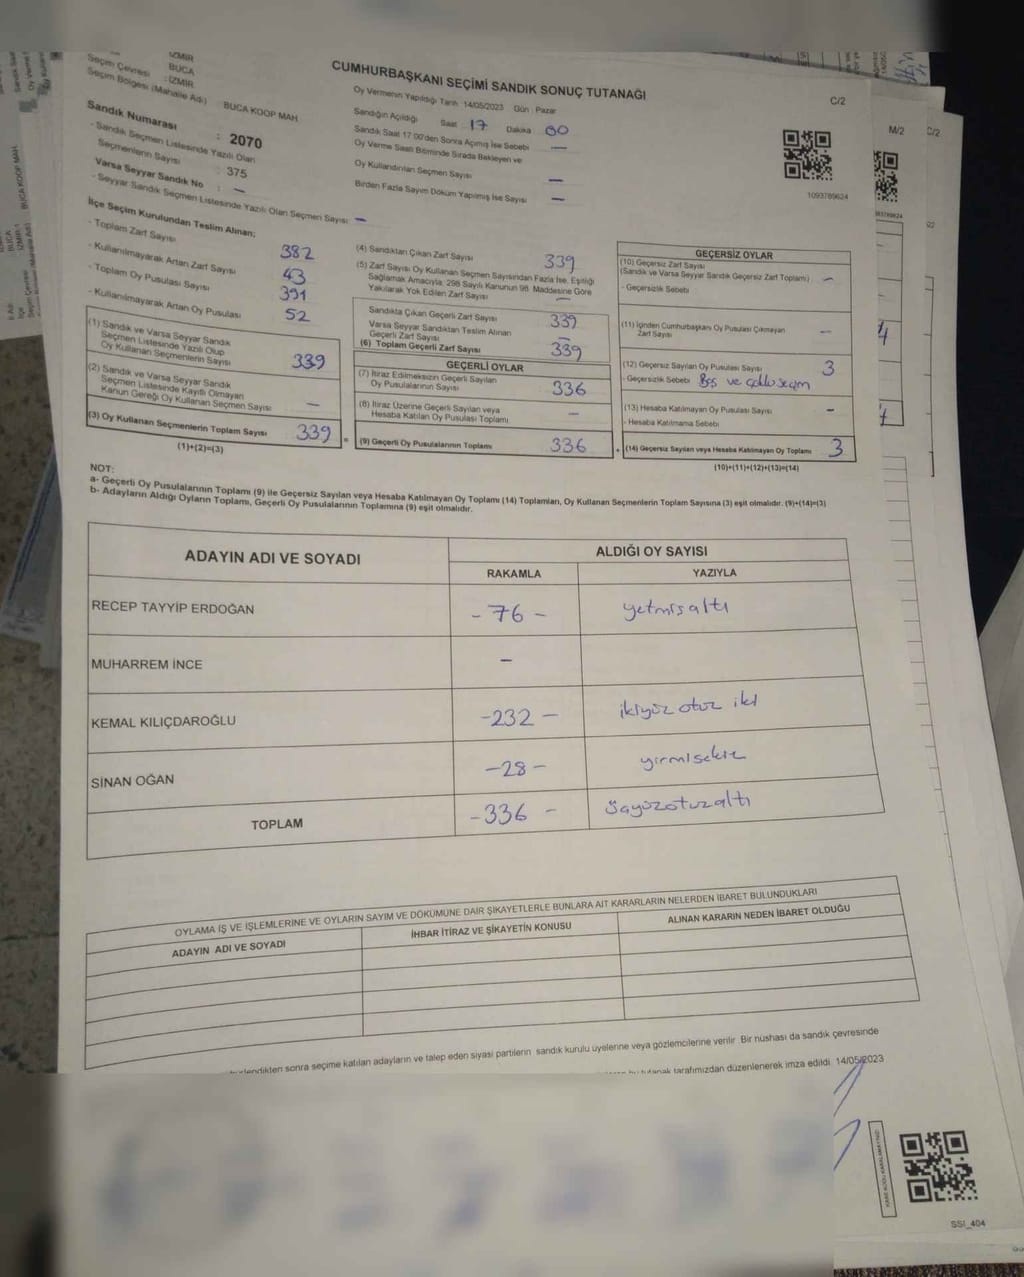 İZMİR
BUCA
Seçim Çevresi : İZMİR
Seçim Bölgesi (Mahalle Adı) BUCA KOOP MAH.
Sandık Numarası : 2070
- Sandık Seçmen Listesinde Yazılı Olan
Seçmenlerin Sayısı : 375
Varsa Seyyar Sandık No : –
- Seyyar Sandık Seçmen Listesinde Yazılı Olan Seçmen Sayısı : –
CUMHURBAŞKANI SEÇİMİ SANDIK SONUÇ TUTANAĞI
C/2
Oy Vermenin Yapıldığı Tarih : 14/05/2023 Gün : Pazar
Sandığın Açıldığı Saat 17 Dakika 00
Sandık Saat 17.00'den Sonra Açılmış İse Sebebi –
Oy Verme Saati Bitiminde Sırada Bekleyen ve
Oy Kullandırılan Seçmen Sayısı –
Birden Fazla Sayım Döküm Yapılmış İse Sayısı –
1093789624
İlçe Seçim Kurulundan Teslim Alınan;
- Toplam Zarf Sayısı 382
- Kullanılmayarak Artan Zarf Sayısı 43
- Toplam Oy Pusulası Sayısı 391
- Kullanılmayarak Artan Oy Pusulası 52
(1) Sandık ve Varsa Seyyar Sandık
Seçmen Listesinde Yazılı Olup
Oy Kullanan Seçmenlerin Sayısı 339
(2) Sandık ve Varsa Seyyar Sandık
Seçmen Listesinde Kayıtlı Olmayan
Kanun Gereği Oy Kullanan Seçmen Sayısı –
(3) Oy Kullanan Seçmenlerin Toplam Sayısı 339
(1)+(2)=(3)
(4) Sandıktan Çıkan Zarf Sayısı 339
(5) Zarf Sayısı Oy Kullanan Seçmen Sayısından Fazla İse, Eşitliği
Sağlamak Amacıyla, 298 Sayılı Kanunun 98. Maddesine Göre
Yakılarak Yok Edilen Zarf Sayısı –
Sandıkta Çıkan Geçerli Zarf Sayısı 339
Varsa Seyyar Sandıktan Teslim Alınan
Geçerli Zarf Sayısı –
(6) Toplam Geçerli Zarf Sayısı 339
GEÇERLİ OYLAR
(7) İtiraz Edilmeksizin Geçerli Sayılan
Oy Pusulalarının Sayısı 336
(8) İtiraz Üzerine Geçerli Sayılan veya
Hesaba Katılan Oy Pusulası Toplamı –
(9) Geçerli Oy Pusulalarının Toplamı 336
GEÇERSİZ OYLAR
(10) Geçersiz Zarf Sayısı
(Sandık ve Varsa Seyyar Sandık Geçersiz Zarf Toplamı) –
- Geçersizlik Sebebi
(11) İçinden Cumhurbaşkanı Oy Pusulası Çıkmayan
Zarf Sayısı –
(12) Geçersiz Sayılan Oy Pusulası Sayısı 3
- Geçersizlik Sebebi Boş ve çoklu seçim
(13) Hesaba Katılmayan Oy Pusulası Sayısı –
- Hesaba Katılmama Sebebi
(14) Geçersiz Sayılan veya Hesaba Katılmayan Oy Toplamı 3
(10)+(11)+(12)+(13)=(14)
NOT:
a- Geçerli Oy Pusulalarının Toplamı (9) ile Geçersiz Sayılan veya Hesaba Katılmayan Oy Toplamı (14) Toplamları, Oy Kullanan Seçmenlerin Toplam Sayısına (3) eşit olmalıdır. (9)+(14)=(3)
b- Adayların Aldığı Oyların Toplamı, Geçerli Oy Pusulalarının Toplamına (9) eşit olmalıdır.
ADAYIN ADI VE SOYADI ALDIĞI OY SAYISI
RAKAMLA YAZIYLA
RECEP TAYYİP ERDOĞAN - 76 - yetmişaltı
MUHARREM İNCE –
KEMAL KILIÇDAROĞLU -232 - ikiyüz otuz iki
SİNAN OĞAN -28- yirmisekiz
TOPLAM -336 - üçyüzotuzaltı
OYLAMA İŞ VE İŞLEMLERİNE VE OYLARIN SAYIM VE DÖKÜMÜNE DAİR ŞİKAYETLERLE BUNLARA AİT KARARLARIN NELERDEN İBARET BULUNDUKLARI
ADAYIN ADI VE SOYADI İHBAR İTİRAZ VE ŞİKAYETİN KONUSU ALINAN KARARIN NEDEN İBARET OLDUĞU
sonra seçime katılan adayların ve talep eden siyasi partilerin sandık kurulu üyelerine veya gözlemcilerine verilir. Bir nüshası da sandık çevresinde
tutanak tarafımızdan düzenlenerek imza edildi. 14/05/2023
SSI_404
M/2
C/2